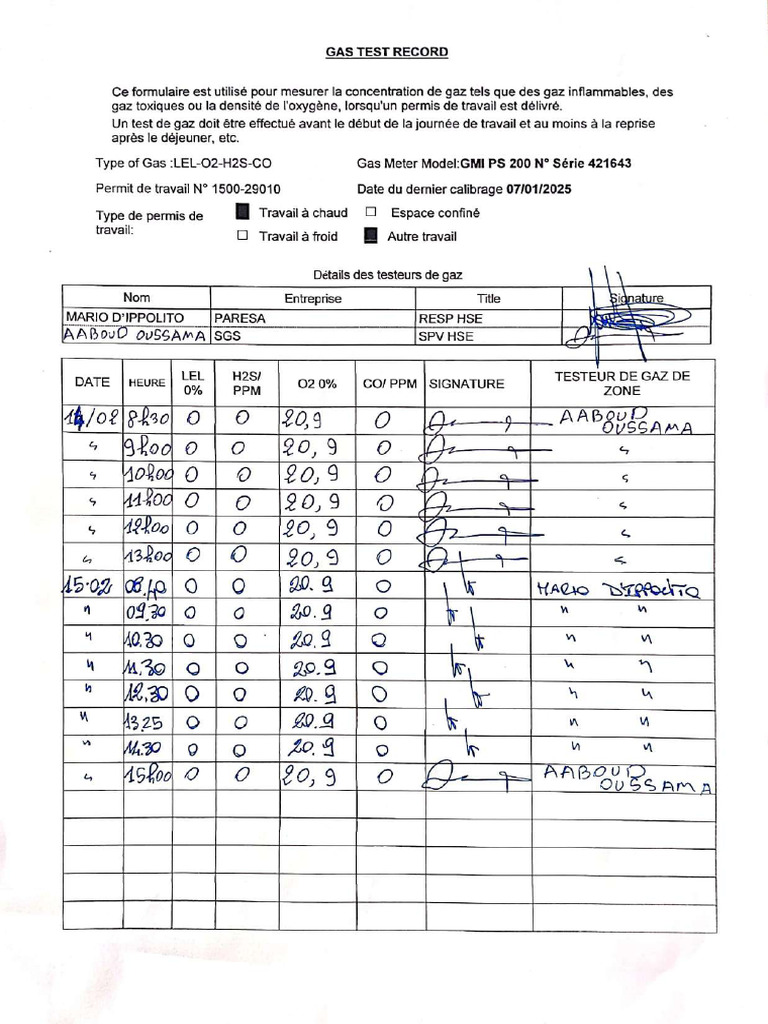 GAS TEST RECORD
Ce formulaire est utilisé pour mesurer la concentration de gaz tels que des gaz inflammables, des
gaz toxiques ou la densité de l'oxygène, lorsqu'un permis de travail est délivré.
Un test de gaz doit être effectué avant le début de la journée de travail et au moins à la reprise
après le déjeuner, etc.
Type of Gas :LEL-O2-H2S-CO Gas Meter Model:GMI PS 200 N° Série 421643
Permit de travail N° 1500-29010 Date du dernier calibrage 07/01/2025
Type de permis de travail: Travail à chaud Espace confiné
Travail à froid Autre travail
Détails des testeurs de gaz
Nom Entreprise Title Signature
MARIO D'IPPOLITO PARESA RESP HSE
AABOUD OUSSAMA SGS SPV HSE
DATE HEURE LEL 0% H2S/ PPM O2 0% CO/ PPM SIGNATURE TESTEUR DE GAZ DE ZONE
14/02 8h30 0 0 20,9 0 AABOUD OUSSAMA
" 9h00 0 0 20,9 0 "
" 10h00 0 0 20,9 0 "
" 11h00 0 0 20,9 0 "
" 12h00 0 0 20,9 0 "
" 13h00 0 0 20,9 0 "
15.02 08.40 0 0 20.9 0 MARIO D'IPPOLITO
" 09.30 0 0 20.9 0 " "
" 10.30 0 0 20.9 0 " "
" 11.30 0 0 20.9 0 " "
" 12.30 0 0 20.9 0 " "
" 13.25 0 0 20.9 0 " "
" 14.30 0 0 20.9 0 " "
" 15h00 0 0 20,9 0 AABOUD OUSSAMA